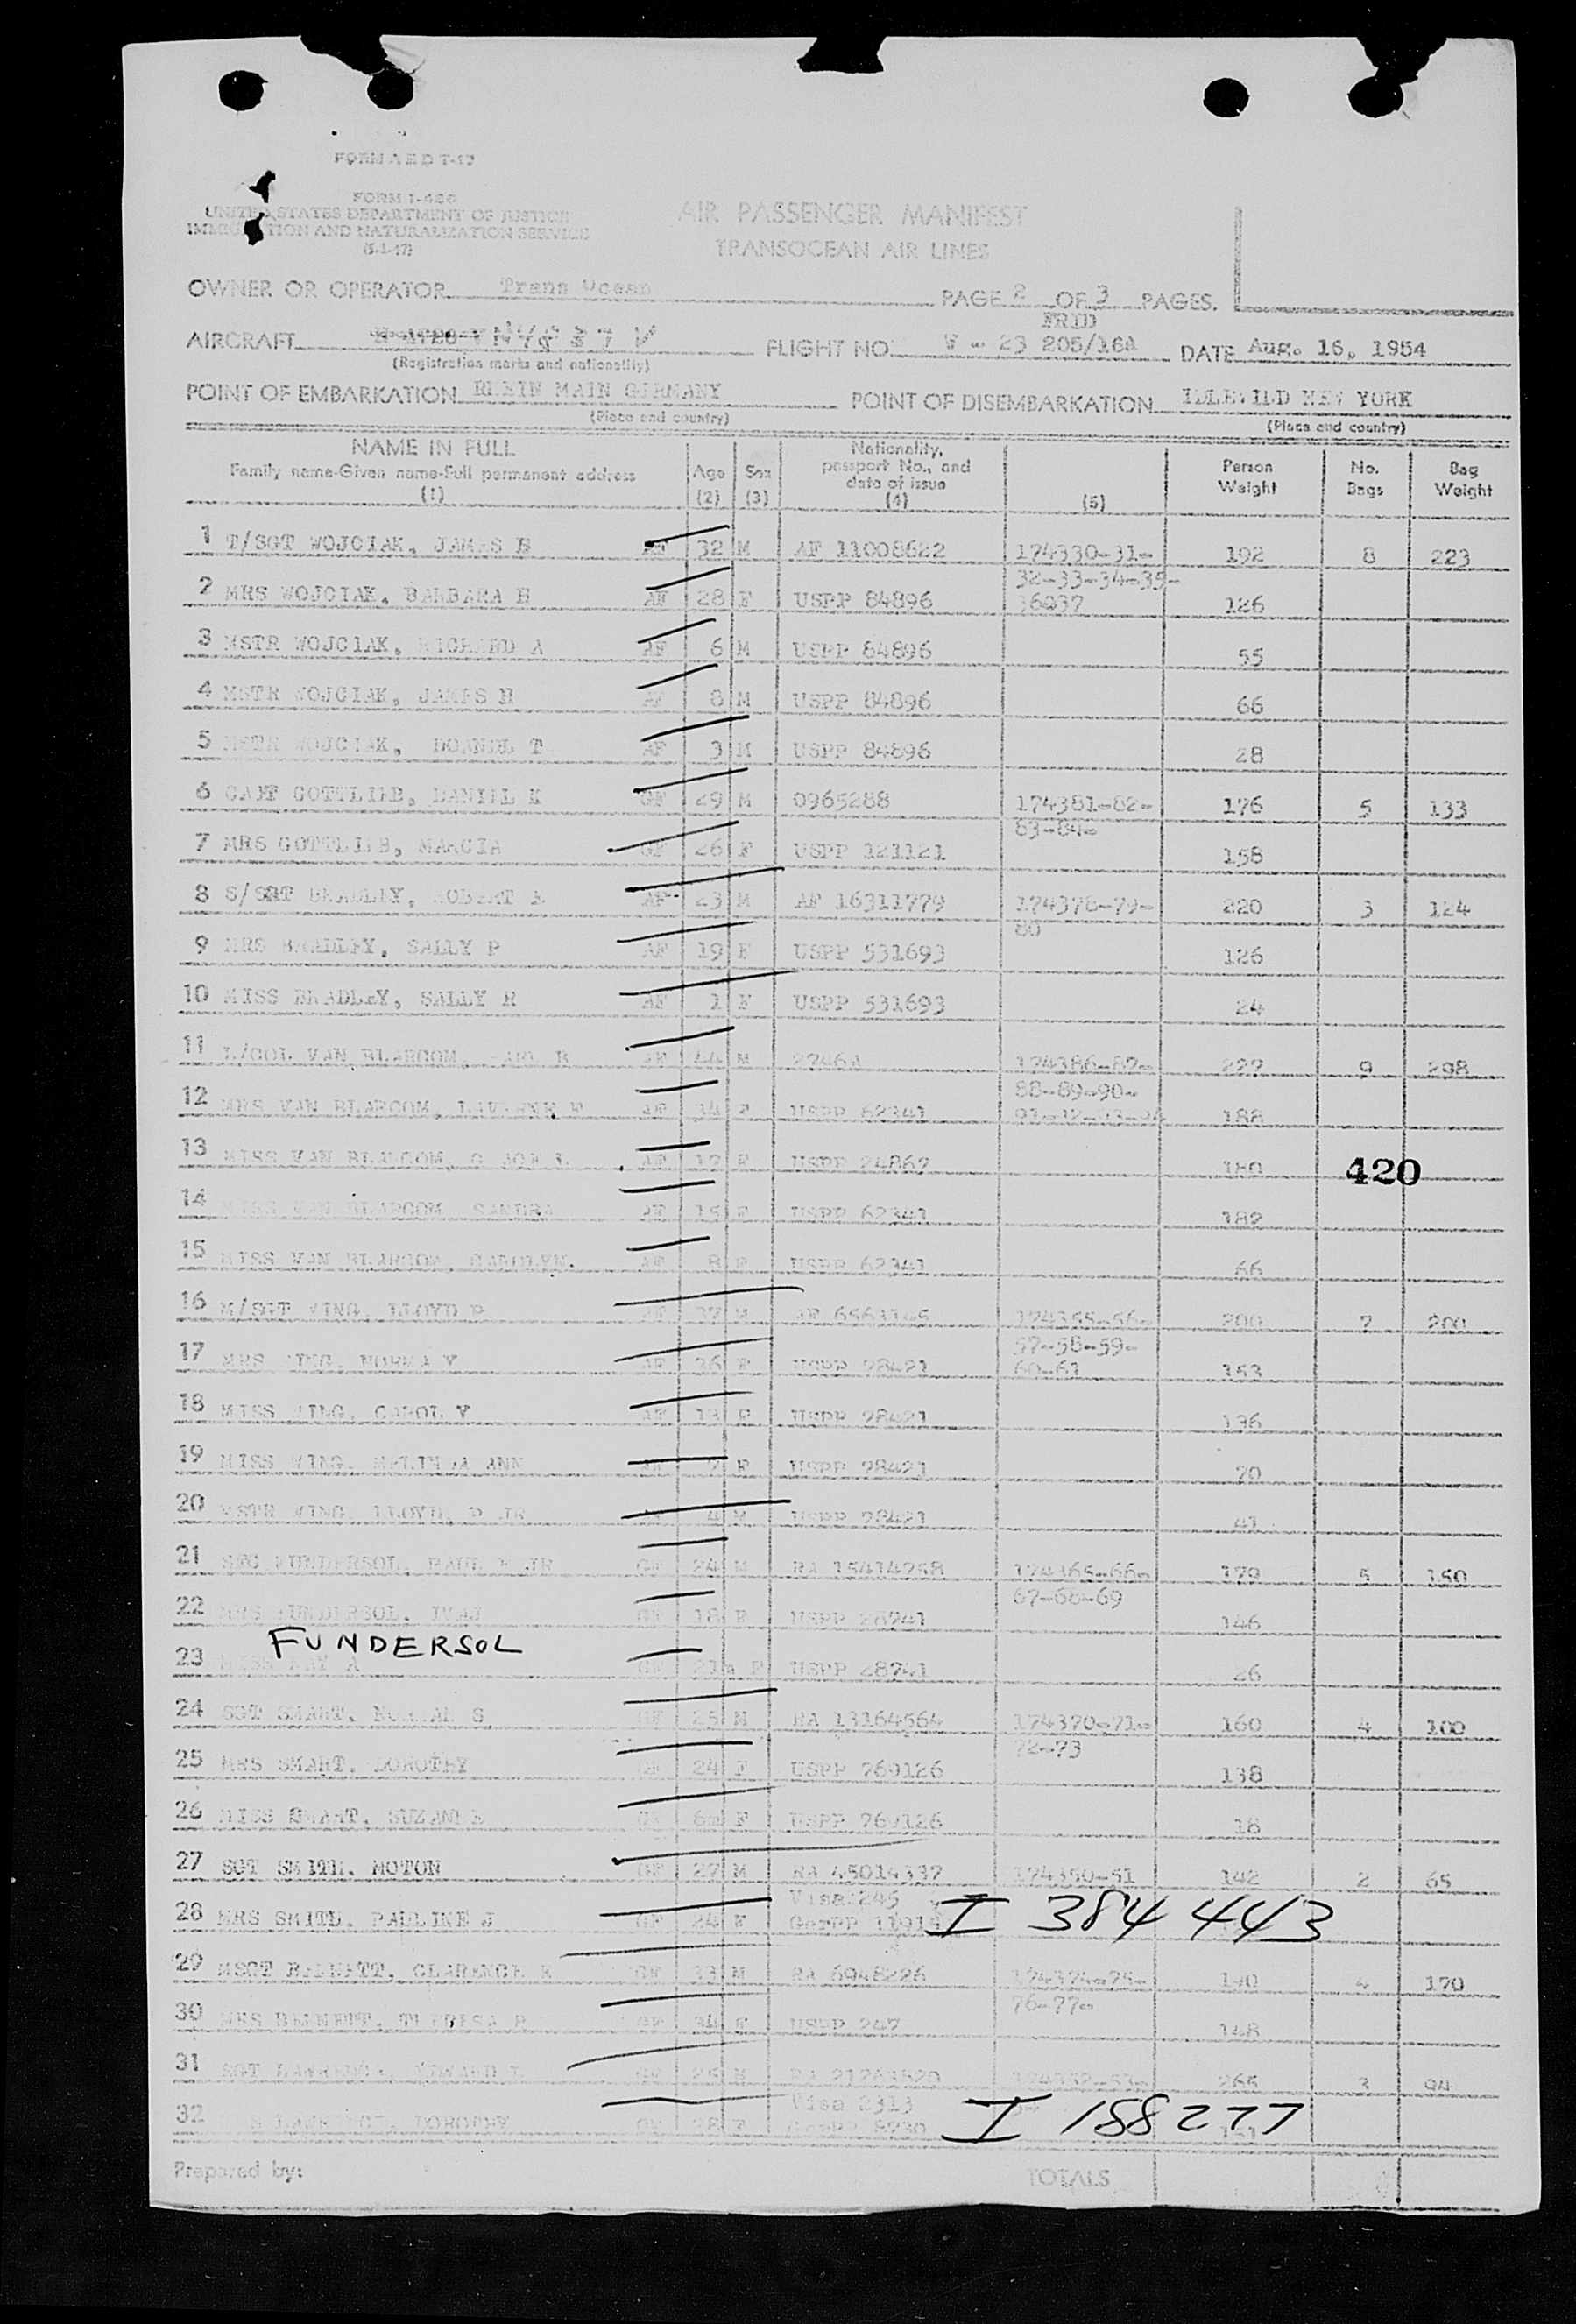 FORM A E D T-17
FORM I-466
UNITED STATES DEPARTMENT OF JUSTICE
IMMIGRATION AND NATURALIZATION SERVICE
(5-1-47)
AIR PASSENGER MANIFEST
TRANSOCEAN AIR LINES
OWNER OR OPERATOR Trans Ocean PAGE 2 OF 3 PAGES.
FRID
AIRCRAFT FLIGHT NO. 23 205/16A DATE Aug. 16, 1954
(Registration marks and nationality)
POINT OF EMBARKATION RHEIN MAIN GERMANY POINT OF DISEMBARKATION IDLEWILD NEW YORK
(Place and country) (Place and country)
NAME IN FULL
Family name-Given name-Full permanent address
(1) Age (2) Sex (3) Nationality, passport No., and date of issue (4) (5) Person Weight No. Bags Bag Weight
1 T/SGT WOJCIAK, JAMES B AF 32 M AF 11008622 174330-31- 192 8 223
32-33-34-35-
2 MRS WOJCIAK, BARBARA H AF 28 F USPP 84896 126
3 MSTR WOJCIAK, RICHARD A AF 6 M USPP 84896 55
4 MSTR WOJCIAK, JAMES H AF 8 M USPP 84896 66
5 MSTR WOJCIAK, T AF 3 M USPP 84896 28
6 CAPT GOTTLIEB, DANIEL K GF 29 M 0965288 174381-82- 176 5 133
83-84-
7 MRS GOTTLIEB, MARCIA GF 26 F USPP 121121 158
8 S/SGT BRADLEY, ROBERT AF 23 M AF 16311779 174378-79- 220 3 124
80
9 MRS BRADLEY, SALLY P AF 19 F USPP 531693 126
10 MISS BRADLEY, SALLY R AF 1 F USPP 531693 24
11 L/COL VAN BLARCOM, AF 44 M 2746A 174386-87- 227 9 298
88-89-90-
12 MRS VAN BLARCOM, LAVERNE AF 34 F USPP 62341 188
13 MISS VAN BLARCOM, AF 17 F USPP 24867 180 420
14 MISS VAN BLARCOM, SANDRA AF 15 F USPP 62341 182
15 MISS VAN BLARCOM, CAROLYN. AF 8 F USPP 62341 66
16 M/SGT WING, LLOYD P AF 37 M AF 174355-56- 200 7 200
57-58-59-
17 MRS WING, NORMA Y AF 36 F USPP 78421 60-61 153
18 MISS WING, CAROL Y AF 13 F USPP 78421 136
19 MISS WING, MELINDA ANN AF 7 F USPP 78421 70
20 MSTR WING, LLOYD, P JR AF 4 M USPP 78421 41
21 FUNDERSOL, PAUL JR GF 24 M RA 15414258 174365-66- 179 5 150
67-68-69
22 MRS FUNDERSOL, GF 18 F USPP 28741 146
FUNDERSOL
23 MISS A GF F USPP 28741 26
24 SGT SMART, NORMAN S GF 25 M RA 13164564 174370-71- 160 4 100
72-73
25 MRS SMART, DOROTHY GF 24 F USPP 769126 138
26 MISS SMART, SUZANNE GF 6m F USPP 769126 18
27 SGT SMITH, MOTON GF 27 M RA 45014337 174350-51 142 2 65
Visa 245
28 MRS SMITH, PAULINE J GF 24 F GerPP I 384 443
29 MSGT BENNETT, CLARENCE GF 33 M RA 6948226 174374-75- 4 170
76-77-
30 MRS BENNETT, THERESA GF 34 F USPP 247 148
31 SGT LAWRENCE, GF M 265 3 94
Visa 2313
32 MRS LAWRENCE, DOROTHY GF 28 F GerPP 8730 I 188277
Prepared by: TOTALS